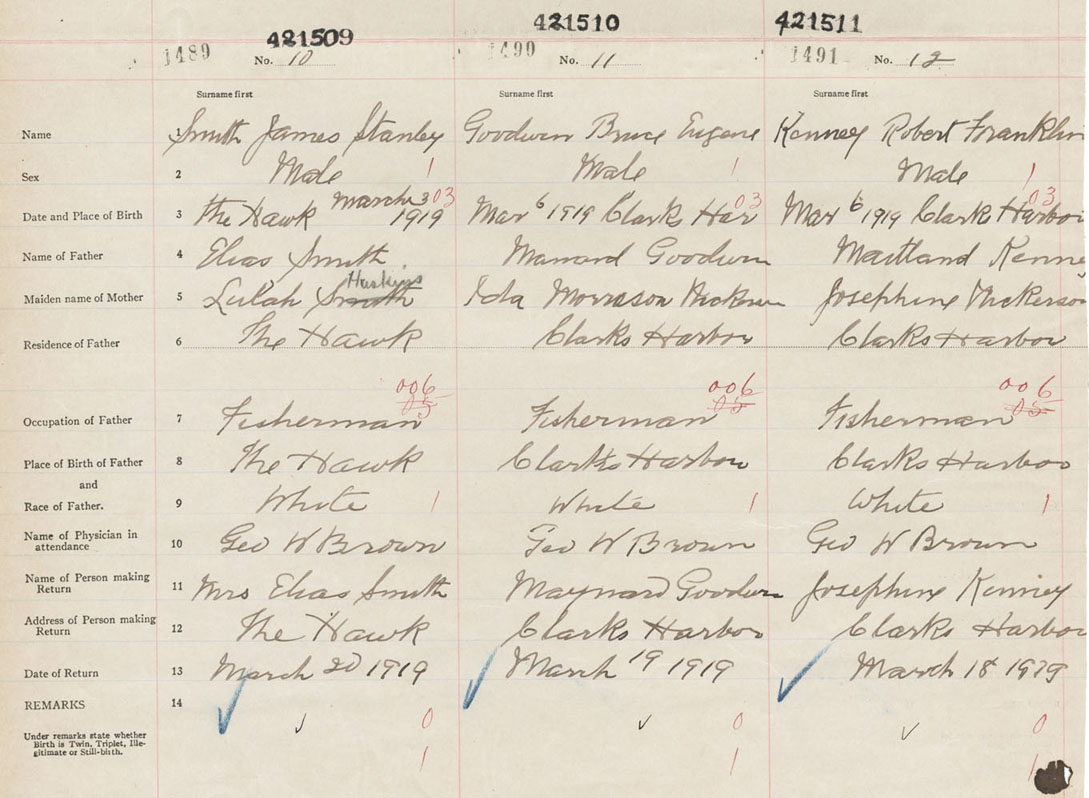 421509 421510 421511
1489 No. 10 1490 No. 11 1491 No. 12
Surname first Surname first Surname first
Name 1 Smith James Stanley Goodwin Bruce Eugene Kenney Robert Franklin
Sex 2 Male 1 Male 1 Male 1
Date and Place of Birth 3 The Hawk March 3 1919 03 Mar 6 1919 Clarks Har 03 Mar 6 1919 Clarks Harbor 03
Name of Father 4 Elias Smith Goodwin Maitland Kenne
Maiden name of Mother 5 Lulah Smith Huskins Ida Morrison Nickerson Josephine Nickerson
Residence of Father 6 The Hawk Clarks Harbor Clarks Harbor
006 006 006
05 05 05
Occupation of Father 7 Fisherman Fisherman Fisherman
Place of Birth of Father 8 The Hawk Clarks Harbor Clarks Harbor
and
Race of Father. 9 White 1 White 1 White 1
Name of Physician in attendance 10 Geo W Brown Geo W Brown Geo W Brown
Name of Person making Return 11 Mrs Elias Smith Maynard Goodwin Josephine Kenney
Address of Person making Return 12 The Hawk Clarks Harbor Clarks Harbor
Date of Return 13 March 20 1919 March 19 1919 March 18 1919
REMARKS 14
0 0 0
Under remarks state whether
Birth is Twin, Triplet, Ille-
gitimate or Still-birth.
1 1 1